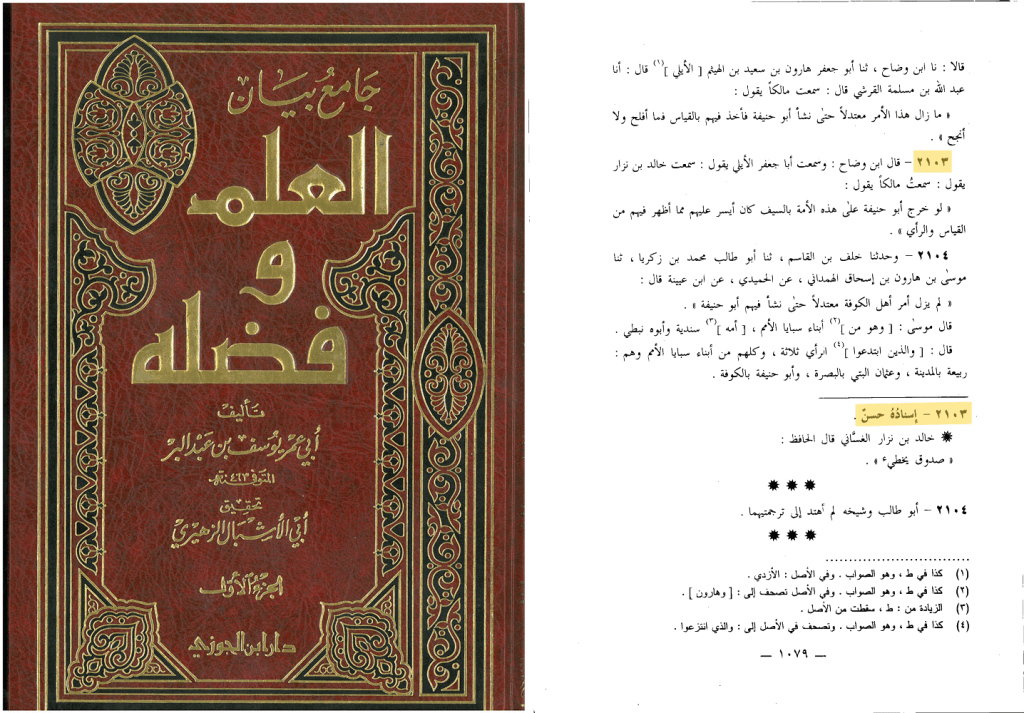 جامع بيان
العلم
و
فضله
تأليف
أبي عمر يوسف بن عبد البر
المتوفى ٤٦٣ سنة هـ
تحقيق
أبي الأشبال الزهيري
الجزء الأول
دار ابن الجوزي
قالا : نا ابن وضاح ، ثنا أبو جعفر هارون بن سعيد بن الهيثم [ الأيلي ](١) قال : أنا
عبد الله بن مسلمة القرشي قال : سمعت مالكاً يقول :
« ما زال هذا الأمر معتدلاً حتى نشأ أبو حنيفة فأخذ فيهم بالقياس فما أفلح ولا
أنجح » .
٢١٠٣ – قال ابن وضاح : وسمعت أبا جعفر الأيلي يقول : سمعت خالد بن نزار
يقول : سمعتُ مالكاً يقول :
« لو خرج أبو حنيفة على هذه الأمة بالسيف كان أيسر عليهم مما أظهر فيهم من
القياس والرأي » .
٢١٠٤ – وحدثنا خلف بن القاسم ، ثنا أبو طالب محمد بن زكريا ، ثنا
موسى بن هارون بن إسحاق الهمداني ، عن الحميدي ، عن ابن عيينة قال :
« لم يزل أمر أهل الكوفة معتدلاً حتى نشأ فيهم أبو حنيفة » .
قال موسى : [ وهو من ](٢) أبناء سبايا الأمم ، [ أمه ](٣) سندية وأبوه نبطي .
قال : [ والذين ابتدعوا ](٤) الرأي ثلاثة ، وكلهم من أبناء سبايا الأمم وهم :
ربيعة بالمدينة ، وعثمان البتي بالبصرة ، وأبو حنيفة بالكوفة .
٢١٠٣ – إسنادُهُ حسنٌ .
✹ خالد بن نزار الغسَّاني قال الحافظ :
« صدوق يخطيء » .
✹ ✹ ✹
٢١٠٤ – أبو طالب وشيخه لم أهتد إلى ترجمتيهما .
✹ ✹ ✹
(١) كذا في ط ، وهو الصواب . وفي الأصل : الأزدي .
(٢) كذا في ط ، وهو الصواب . وفي الأصل تصحف إلى : [ وهارون ] .
(٣) الزيادة من : ط ، سقطت من الأصل .
(٤) كذا في ط ، وهو الصواب . وتصحف في الأصل إلى : والذي انتزعوا .
— ١٠٧٩ —